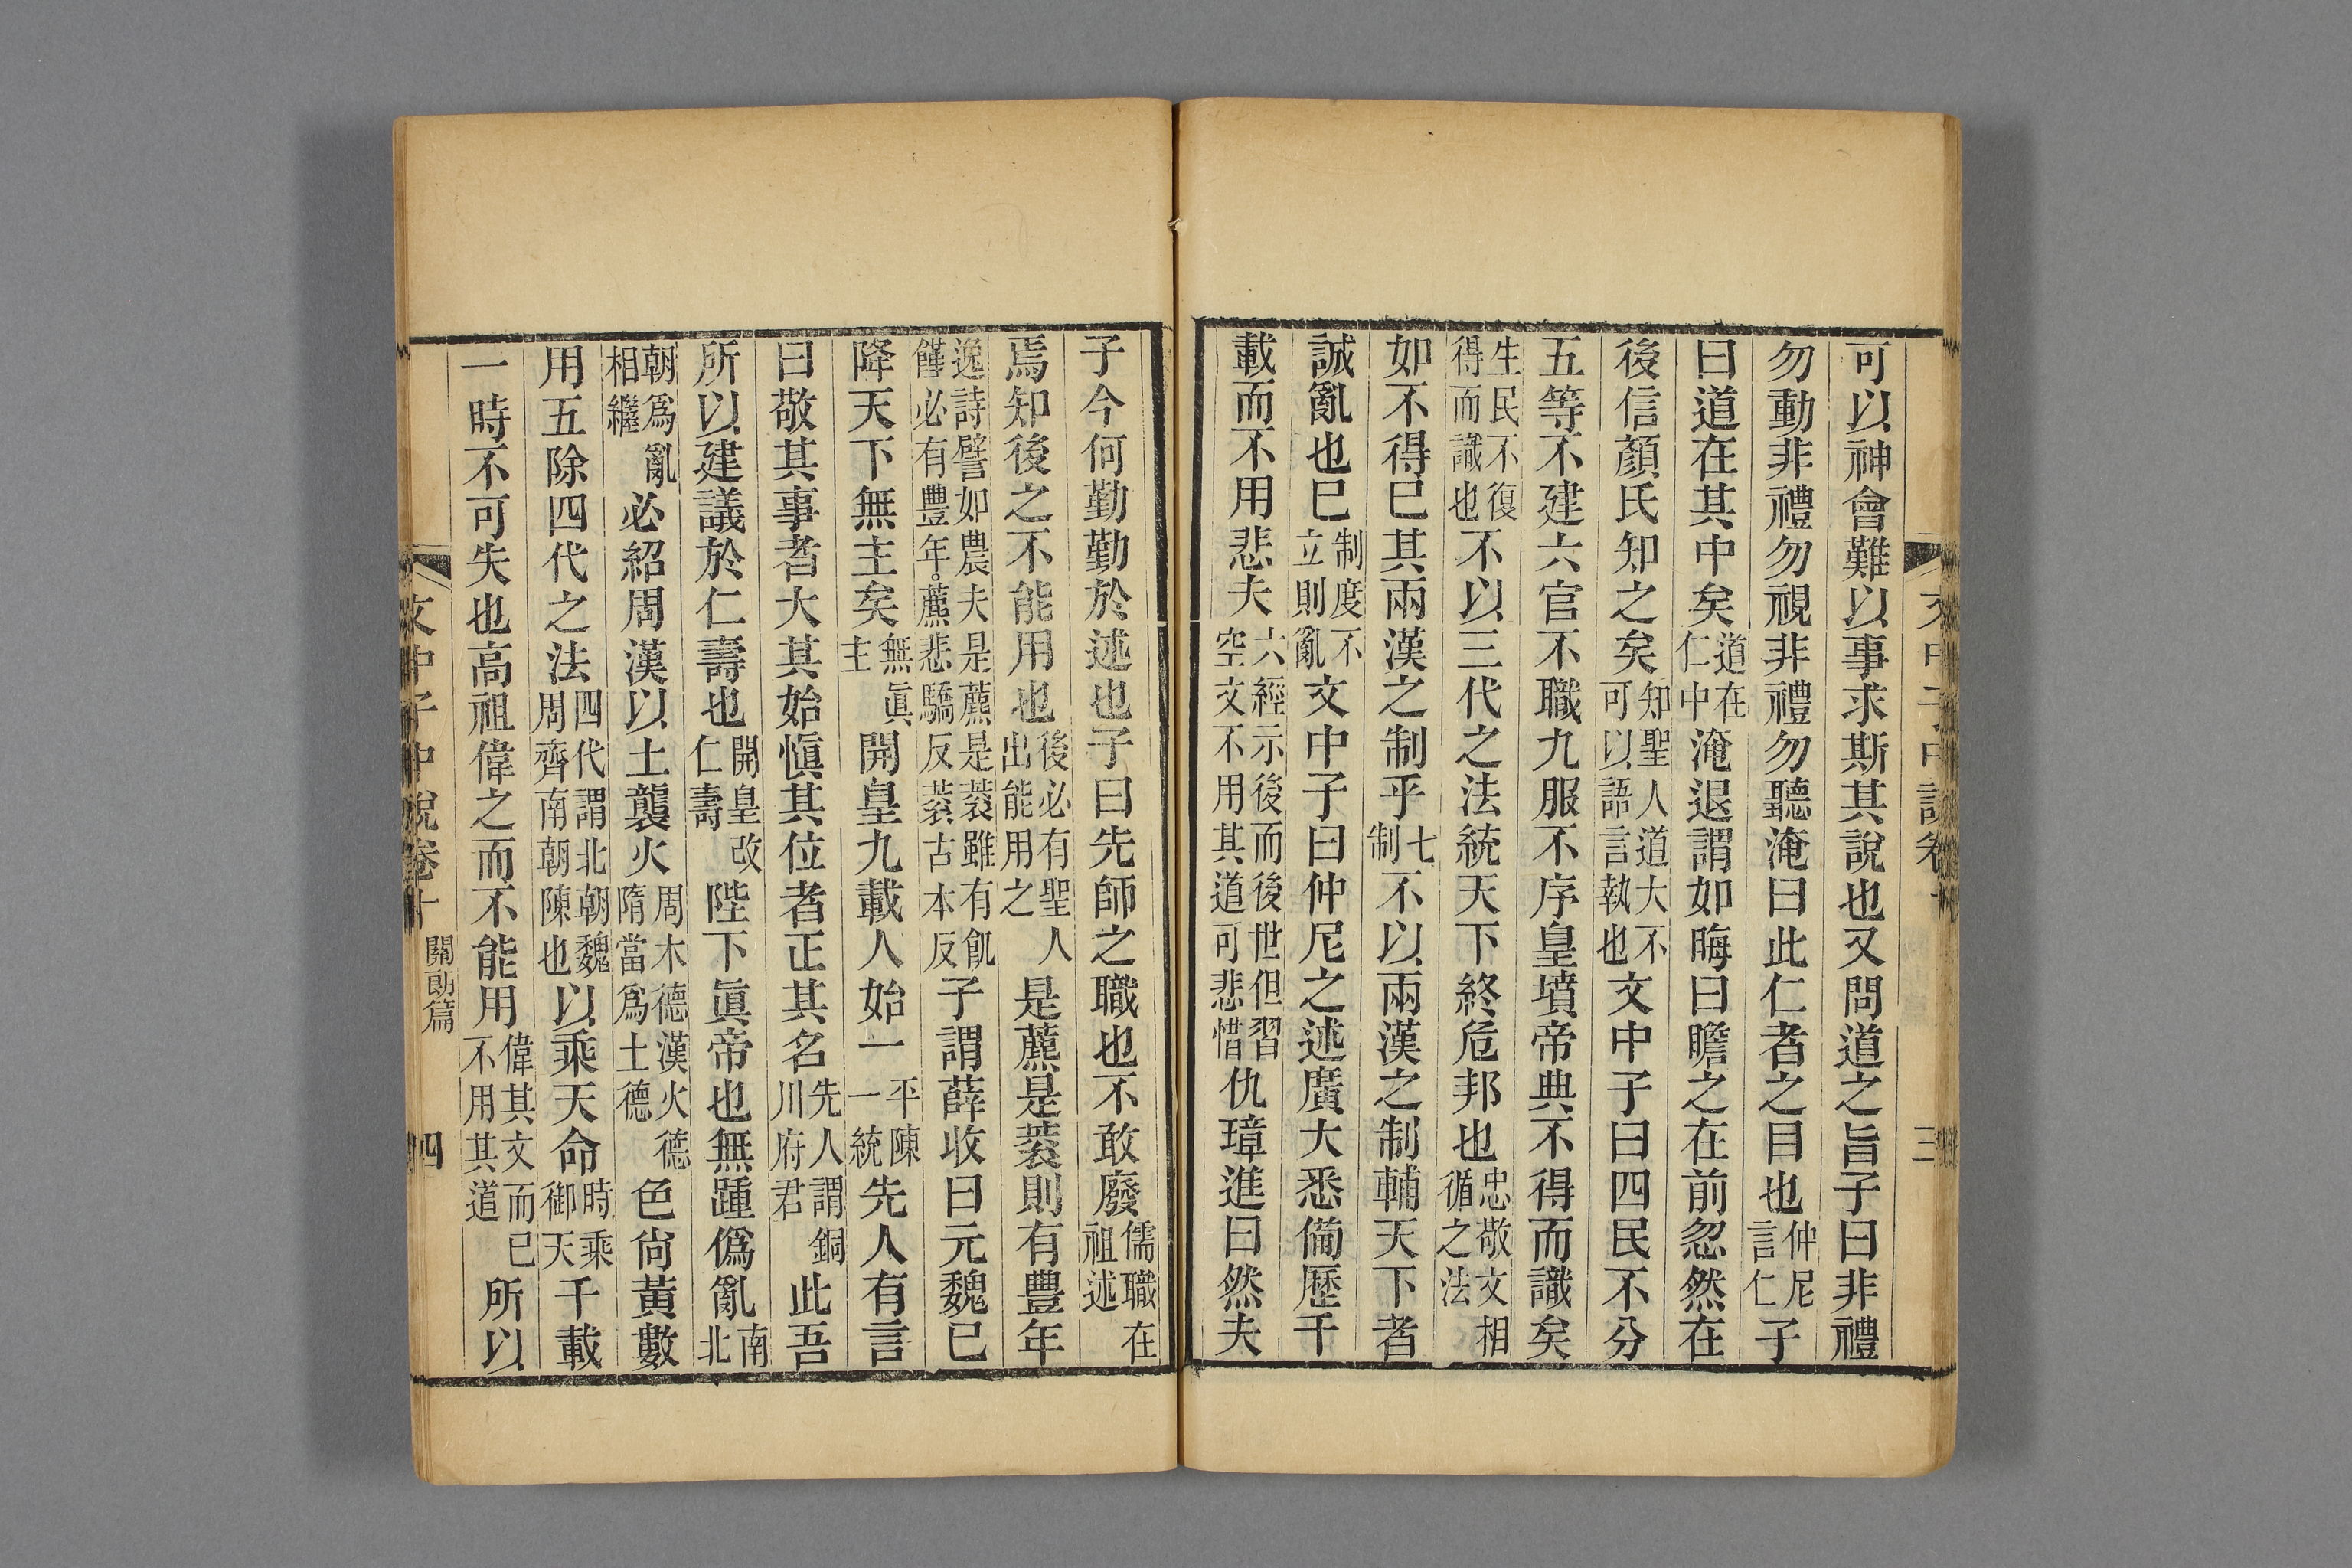 可以神會難以事求斯其說也又問道之旨子曰非禮
勿動非禮勿視非禮勿聽淹曰此仁者之目也仲尼言仁子
曰道在其中矣道在仁中淹退謂如晦曰瞻之在前忽然在
後信顏氏知之矣知聖人道大不可以語言執也文中子曰四民不分
五等不建六官不職九服不序皇墳帝典不得而識矣
生民不復得而識也不以三代之法統天下終危邦也忠敬文相循之法
如不得已其兩漢之制乎七制不以兩漢之制輔天下者
誠亂也已制度不立則亂文中子曰仲尼之述廣大悉備歷千
載而不用悲夫六經示後而後世但習空文不用其道可悲惜仇璋進曰然夫
子今何勤勤於述也子曰先師之職也不敢廢儒職在祖述
焉知後之不能用也後必有聖人出能用之是藨是蔉則有豐年
逸詩譬如農夫是藨是蔉雖有飢饉必有豐年藨悲驕反蔉古本反子謂薛收曰元魏已
降天下無主矣無眞主開皇九載人始一平陳一統先人有言
曰敬其事者大其始愼其位者正其名先人謂銅川府君此吾
所以建議於仁壽也開皇改仁壽陛下眞帝也無踵僞亂南北
朝爲亂相繼必紹周漢以土襲火周木德漢火德隋當爲土德色尙黃數
用五除四代之法四代謂北朝魏周齊南朝陳也以乘天命時乘御天千載
一時不可失也高祖偉之而不能用偉其文而已不用其道所以
文中子中說卷十
關朗篇
四
三